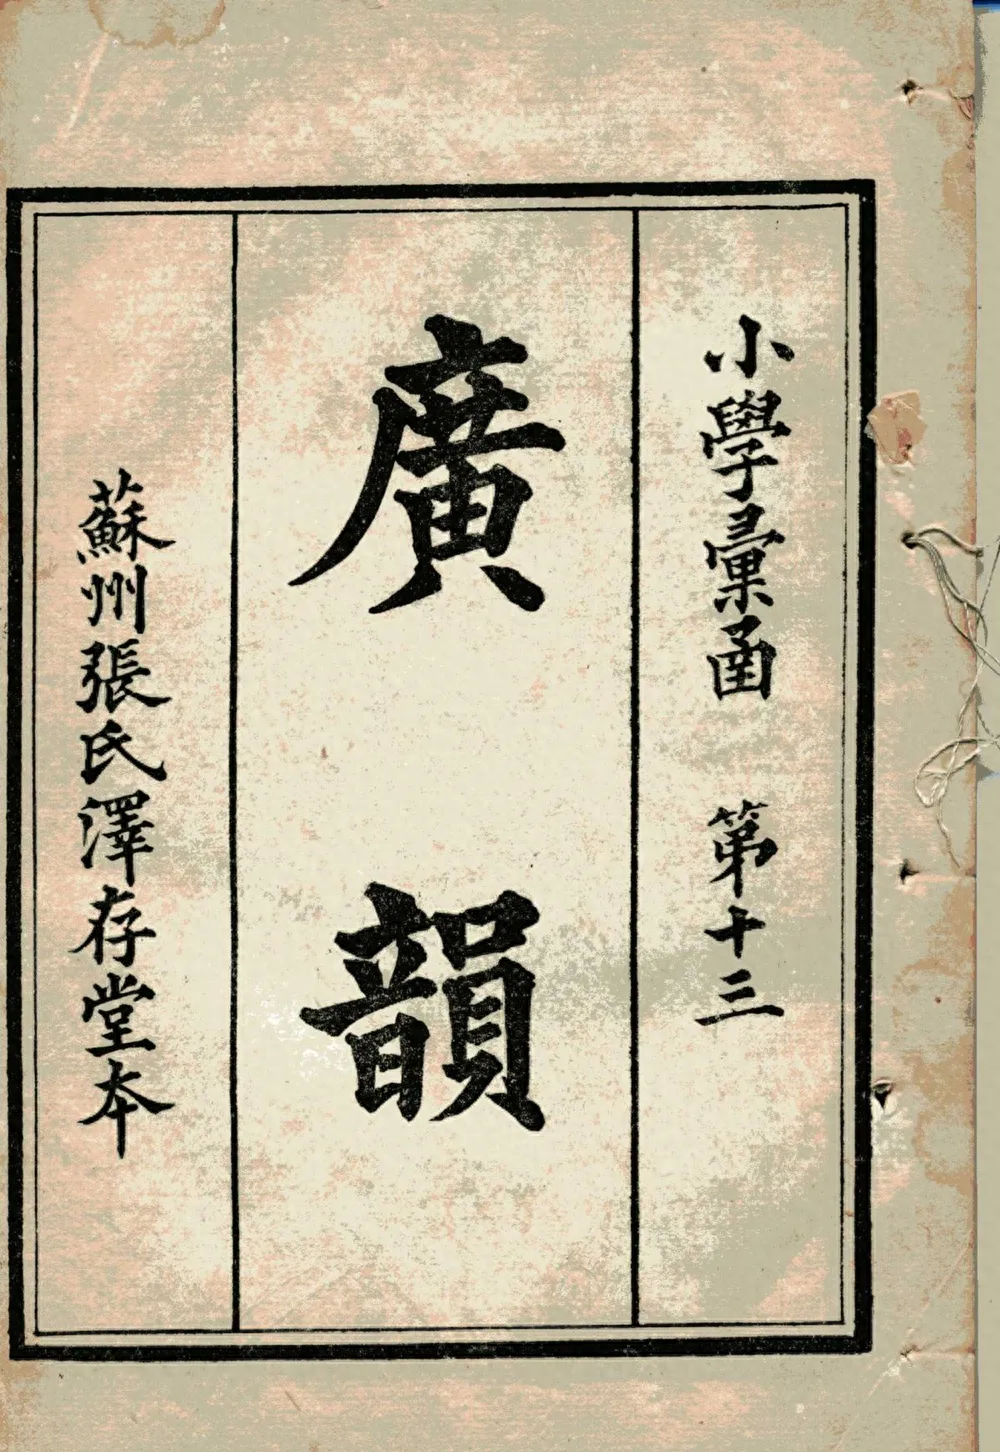 小學彙函　第十三
廣韻
蘇州張氏澤存堂本